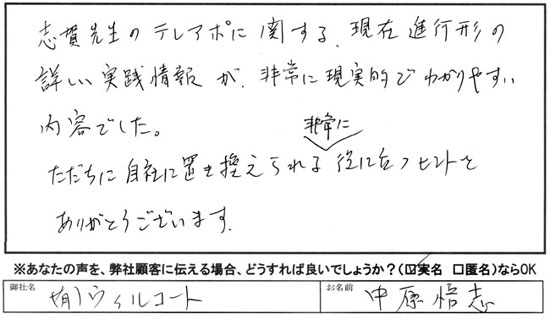 志賀先生のテレアポに関する、現在進行形の
詳しい実践情報が、非常に現実的でわかりやすい
内容でした。
非常に
ただちに自社に置き換えられる役に立つヒントを
ありがとうございます。
※あなたの声を、弊社顧客に伝える場合、どうすれば良いでしょうか？(☑実名 □匿名)ならOK
御社名 (有)ウィルコート お名前 中原悟志